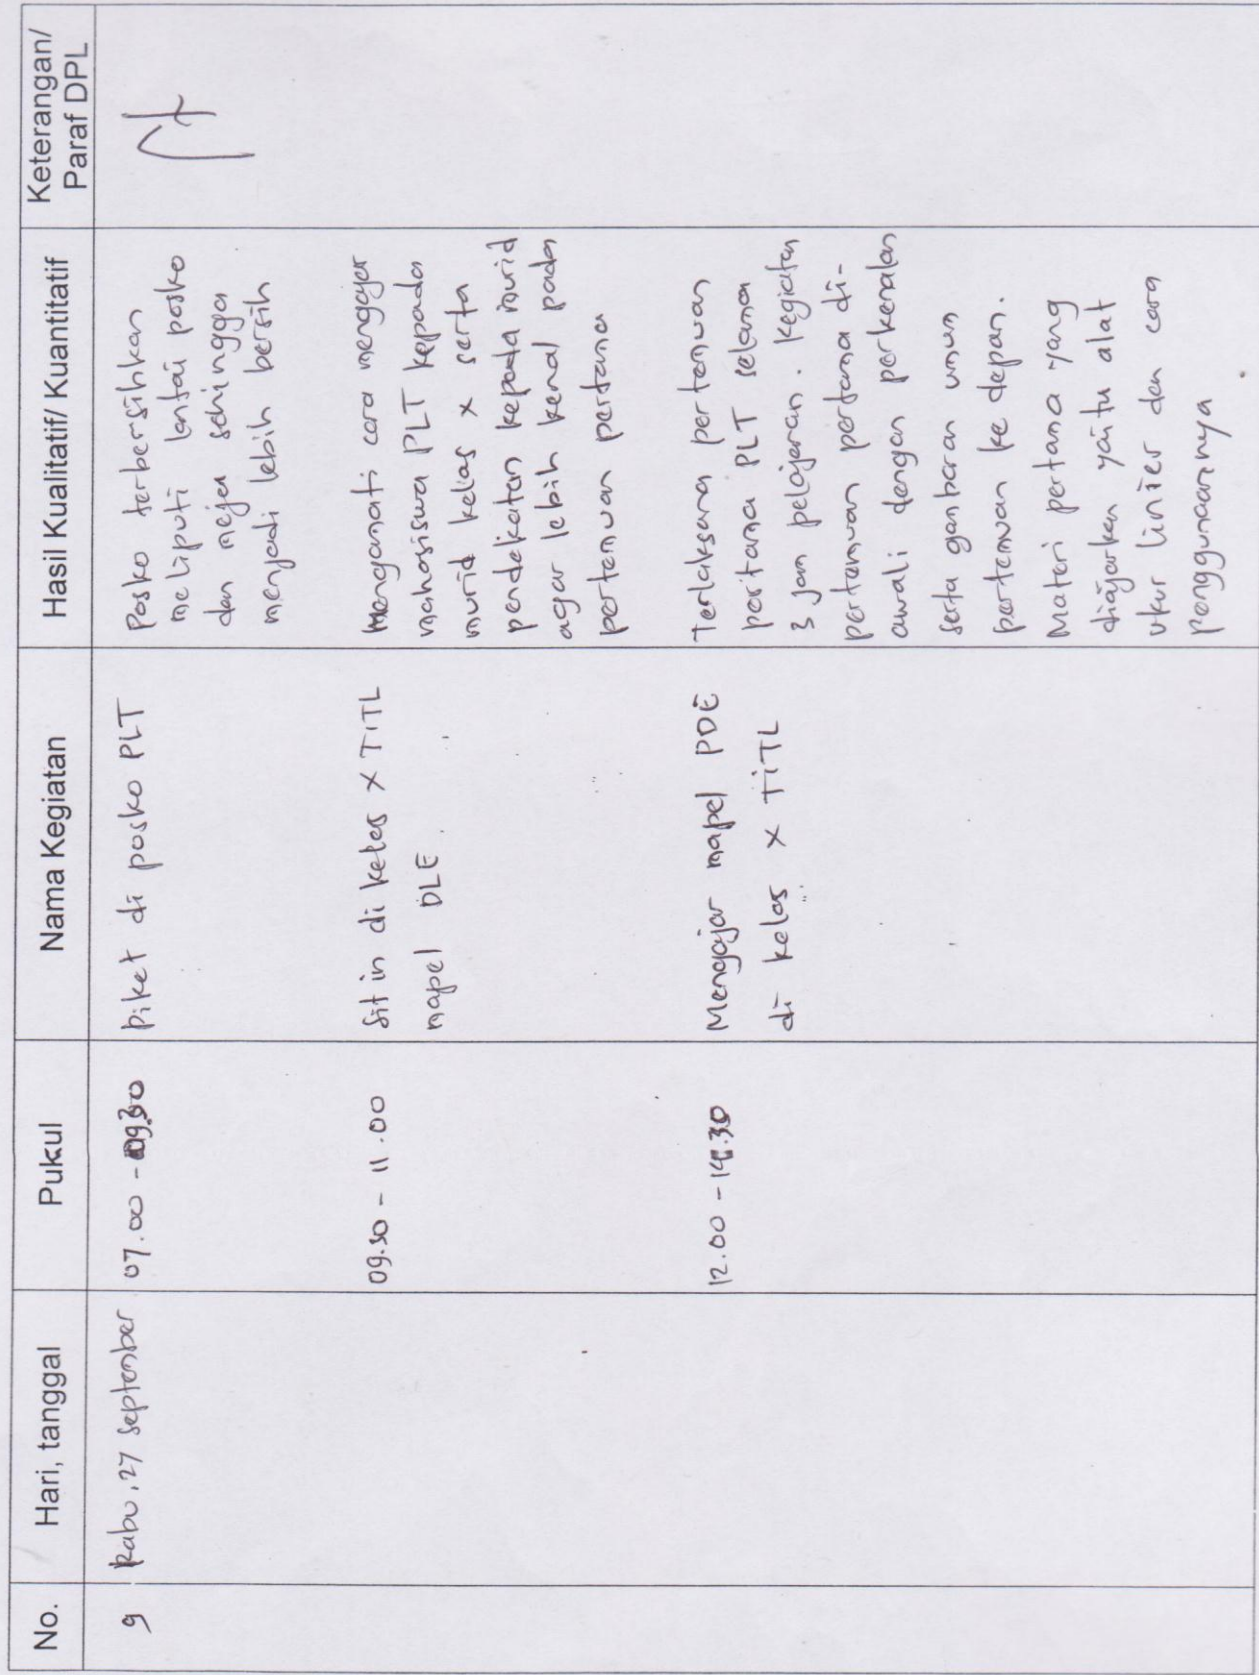 No.
Hari, tanggal
Pukul
Nama Kegiatan
Hasil Kualitatif/ Kuantitatif
Keterangan/
Paraf DPL
9
Rabu, 27 september
07.00 - 09.30
piket di posko PLT
Posko terbersihkan
meliputi lantai posko
dan meja sehingga
menjadi lebih bersih
09.30 - 11.00
Sit in di kelas X TITL
mapel DLE.
Mengamati cara mengajar
mahasiswa PLT kepada
murid kelas X serta
pendekatan kepada murid
agar lebih kenal pada
pertemuan pertama
12.00 - 14.30
Mengajar mapel PDE
di kelas X TITL
Terlaksana pertemuan
pertama PLT selama
3 jam pelajaran. Kegiatan
pertemuan pertama di-
awali dengan perkenalan
serta gambaran umum
pertemuan ke depan.
Materi pertama yang
diajarkan yaitu alat
ukur linier dan cara
penggunaannya